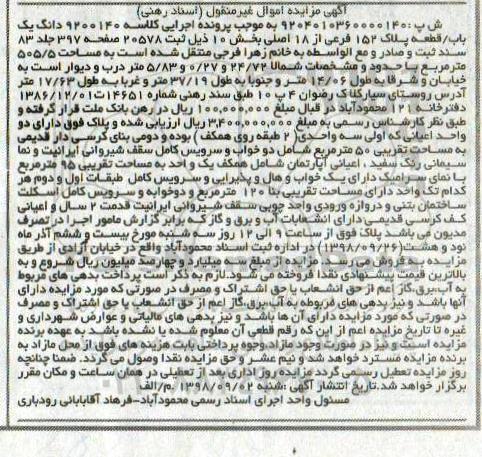 آگهی مزایده اموال غیرمنقول (اسناد رهنی)
ش پ :۹۲۰۴۰۱۰۳۶۰۰۰۰۱۴۰ به موجب پرونده اجرایی کلاسه ۹۲۰۰۱۴۰ دانگ یک
باب/قطعه پلاک ۱۵۲ فرعی از ۱۸ اصلی بخش ۱۰ ذیل ثبت ۲۰۵۷۸ صفحه ۳۹۷ جلد ۸۳
سند ثبت و صادر و مع الواسطه به خانم زهرا فرجی منتقل شده است به مساحت ۵۰۵/۵
مترمربع با حدود و مشخصات شمالا ۲۴/۷۲ و ۰/۲۷ و ۵/۸۳ متر درب و دیوار است به
خیابان و شرقا به طول ۱۴/۰۶ متر و جنوبا به طول ۳۷/۱۹ متر و غربا به طول ۱۷/۶۳ متر
آدرس روستای سیارکلا ک رضوان ۴ پ ۱۰ طبق سند رهنی شماره ۱۴۶۵۱ت۱۳۸۶/۱۲/۰۱
دفترخانه ۱۲۱ محمودآباد در قبال مبلغ ۱۰۰,۰۰۰,۰۰۰ ریال در رهن بانک ملت قرار گرفته و
طبق نظر کارشناس رسمی به مبلغ ۳,۴۰۰,۰۰۰,۰۰۰ ریال ارزیابی شده و پلاک فوق دارای دو
واحد اعیانی که اولی سه واحد و (۲ طبقه روی همکف ) بوده و دومی بنای کرسی دار قدیمی
به مساحت تقریبی ۵۰ مترمربع شامل دو خواب و سرویس کامل سقف شیروانی ایرانیت و نما
سیمانی رنگ سفید ، اعیانی آپارتمان شامل همکف یک و احد به مساحت تقریبی ۹۵ مترمربع
با نمای سرامیک دارای یک خواب و هال و پذیرایی و سرویس کامل طبقات اول و دوم هر
کدام تک واحد دارای مساحت تقریبی بنا ۱۲۰ مترمربع و دوخوابه و سرویس کامل اسکلت
ساختمان بتنی و دروازه ورودی واحد چوبی سقف شیروانی ایرانیت قدمت ۲ سال و اعیانی
کف کرسی قدیمی دارای انشعابات آب و برق و گاز که برابر گزارش مامور اجرا در تصرف
مدیون می باشد پلاک فوق از ساعت ۹ الی ۱۲ روز سه شنبه مورخ بیست و ششم آذر ماه
نود و هشت(۱۳۹۸/۰۹/۲۶) در اداره ثبت اسناد محمودآباد واقع در خیابان آزادی از طریق
مزایده به فروش می رسد. مزایده از مبلغ سه میلیارد و چهارصد میلیون ریال شروع و به
بالاترین قیمت پیشنهادی نقدا فروخته می شود.لازم به ذکر است پرداخت بدهی های مربوط
به آب،برق،گاز اعم از حق انشعاب یا حق اشتراک و مصرف در صورتی که مورد مزایده دارای
آنها باشد و نیز بدهی های مربوطه به آب،برق،گاز اعم از حق انشعاب یا حق اشتراک و مصرف
در صورتی که مورد مزایده دارای آن ها باشد و نیز بدهی های مالیاتی و عوارض شهرداری و
غیره تا تاریخ مزایده اعم از این که رقم قطعی آن معلوم شده یا نشده باشد به عهده برنده
مزایده است و نیز در صورت وجود مازاد وجوه پرداختی بابت هزینه های فوق از محل مازاد به
برنده مزایده مسترد خواهد شد و نیم عشر و حق مزایده نقدا وصول می گردد. ضمنا چنانچه
روز مزایده تعطیل رسمی گردد مزایده روز اداری بعد از تعطیلی در همان ساعت و مکان مقرر
برگزار خواهد شد.تاریخ انتشار آگهی :شنبه ۱۳۹۸/۰۹/۰۲ م/الف
مسئول واحد اجرای اسناد رسمی محمودآباد-فرهاد آقابابائی رودباری